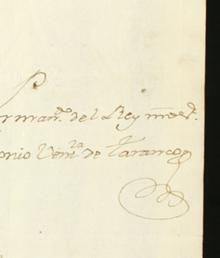 P
rman.º del Rey nro s.r
onio Ventª de Taranco